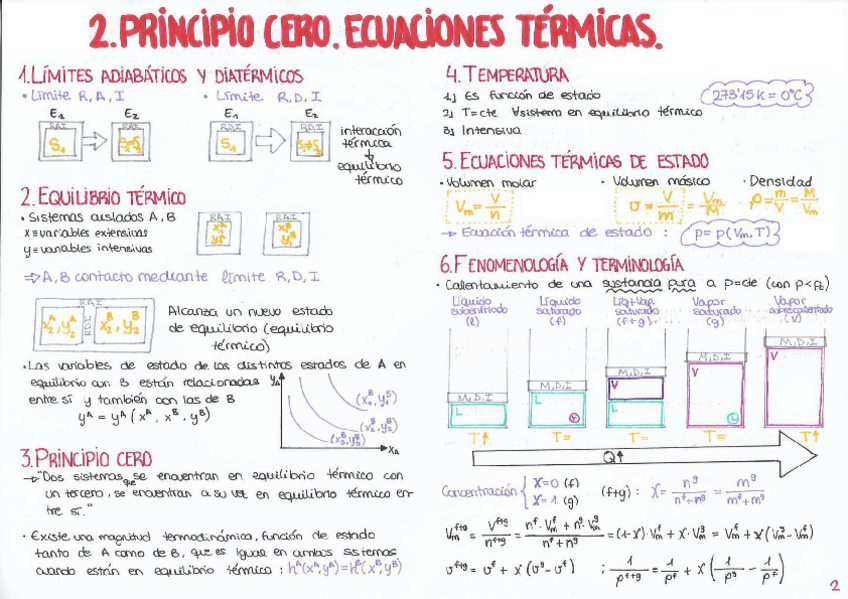 2. PRINCIPIO CERO. ECUACIONES TÉRMICAS.
1. LÍMITES ADIABÁTICOS Y DIATÉRMICOS
• Límite R, A, I
• Límite R, D, I
E₁ E₂ E₁ E₂
R,A,I R,A,I R,D,I R,D,I
S₁ S₁ interacción
térmica
equilibrio
térmico
2. EQUILIBRIO TÉRMICO
• Sistemas aislados A, B
x ≡ variables extensivas
y ≡ variables intensivas
R,A,I R,A,I
⇒ A, B contacto mediante límite R, D, I
R,A,I
x₂ᴬ, y₂ᴬ RDI x₂ᴮ, y₂ᴮ
Alcanza un nuevo estado
de equilibrio (equilibrio
térmico)
• Las variables de estado de los distintos estados de A en
equilibrio con B están relacionadas
entre sí y también con las de B
yᴬ = yᴬ (xᴬ, xᴮ, yᴮ)
yA
xA
3. PRINCIPIO CERO
→ "Dos sistemas que se encuentran en equilibrio térmico con
un tercero, se encuentran a su vez en equilibrio térmico en-
tre sí."
• Existe una magnitud termodinámica, función de estado
tanto de A como de B, que es igual en ambos sistemas
cuando están en equilibrio térmico: hᴬ(xᴬ,yᴬ)=hᴮ(xᴮ,yᴮ)
4. TEMPERATURA
1) Es función de estado
273'15 K = 0ºC
2) T=cte ∀sistema en equilibrio térmico
3) Intensiva
5. ECUACIONES TÉRMICAS DE ESTADO
• Volumen molar • Volumen másico • Densidad
Vm = V/n v = V/m = Vm/M ρ = m/V = M/Vm
→ Ecuación térmica de estado: p = p(Vm, T)
6. FENOMENOLOGÍA Y TERMINOLOGÍA
• Calentamiento de una sustancia pura a p=cte (con p<pc)
Líquido subenfriado (l)
Líquido saturado (f)
Líq+Vap saturado (f+g)
Vapor saturado (g)
Vapor sobrecalentado (v)
M,D,I M,D,I M,D,I M,D,I M,D,I
L L V V L V V L
T↑ T= T= T= T↑
Q↑
Concentración { X=0 (f) X=1 (g) (f+g): X = nᵍ/(nᶠ+nᵍ) = mᵍ/(mᶠ+mᵍ)
Vmᶠ⁺ᵍ = Vᶠ⁺ᵍ/nᶠ⁺ᵍ = (nᶠ·Vmᶠ + nᵍ·Vmᵍ)/(nᶠ+nᵍ) = (1-X)·Vmᶠ + X·Vmᵍ = Vmᶠ + X(Vmᵍ-Vmᶠ)
vᶠ⁺ᵍ = vᶠ + X(vᵍ-vᶠ) ; 1/ρᶠ⁺ᵍ = 1/ρᶠ + X(1/ρᵍ - 1/ρᶠ)
2